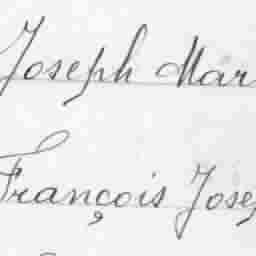 Joseph Mar
François Jose